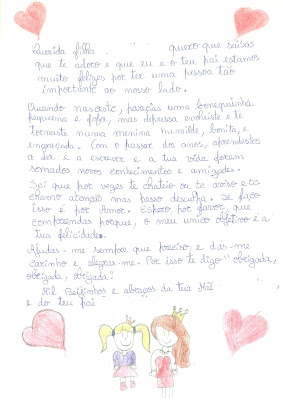 Querida filha quero que saibas
que te adoro e que eu e o teu pai estamos
muito felizes por ter uma pessoa tão
importante ao nosso lado.
Quando nasceste, parecias uma bonequinha
pequena e fofa, mas depressa evoluiste e te
tornaste numa menina humilde, bonita, e
engraçada. Com o passar dos anos, aprendestes
a ler e a escrever e a tua vida foram
somados novos conhecimentos e amizades.
Sei que por vezes te chateio ou te aviso e te
chamo atenção mas peço desculpa. Se faço
isso é por Amor. Espero, por favor, que
compreendas porque, o meu unico objetivo é a
tua felicidade.
Ajudas-me sempre que preciso, e dás-me
carinho e alegras-me. Por isso te digo "obrigada,
obrigada, obrigada".
Mil Beijinhos e abraços da tua Mãe
e do teu pai